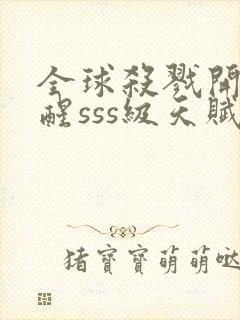 全球殺戮開
醒sss級天賦
猪寶寶萌萌噠